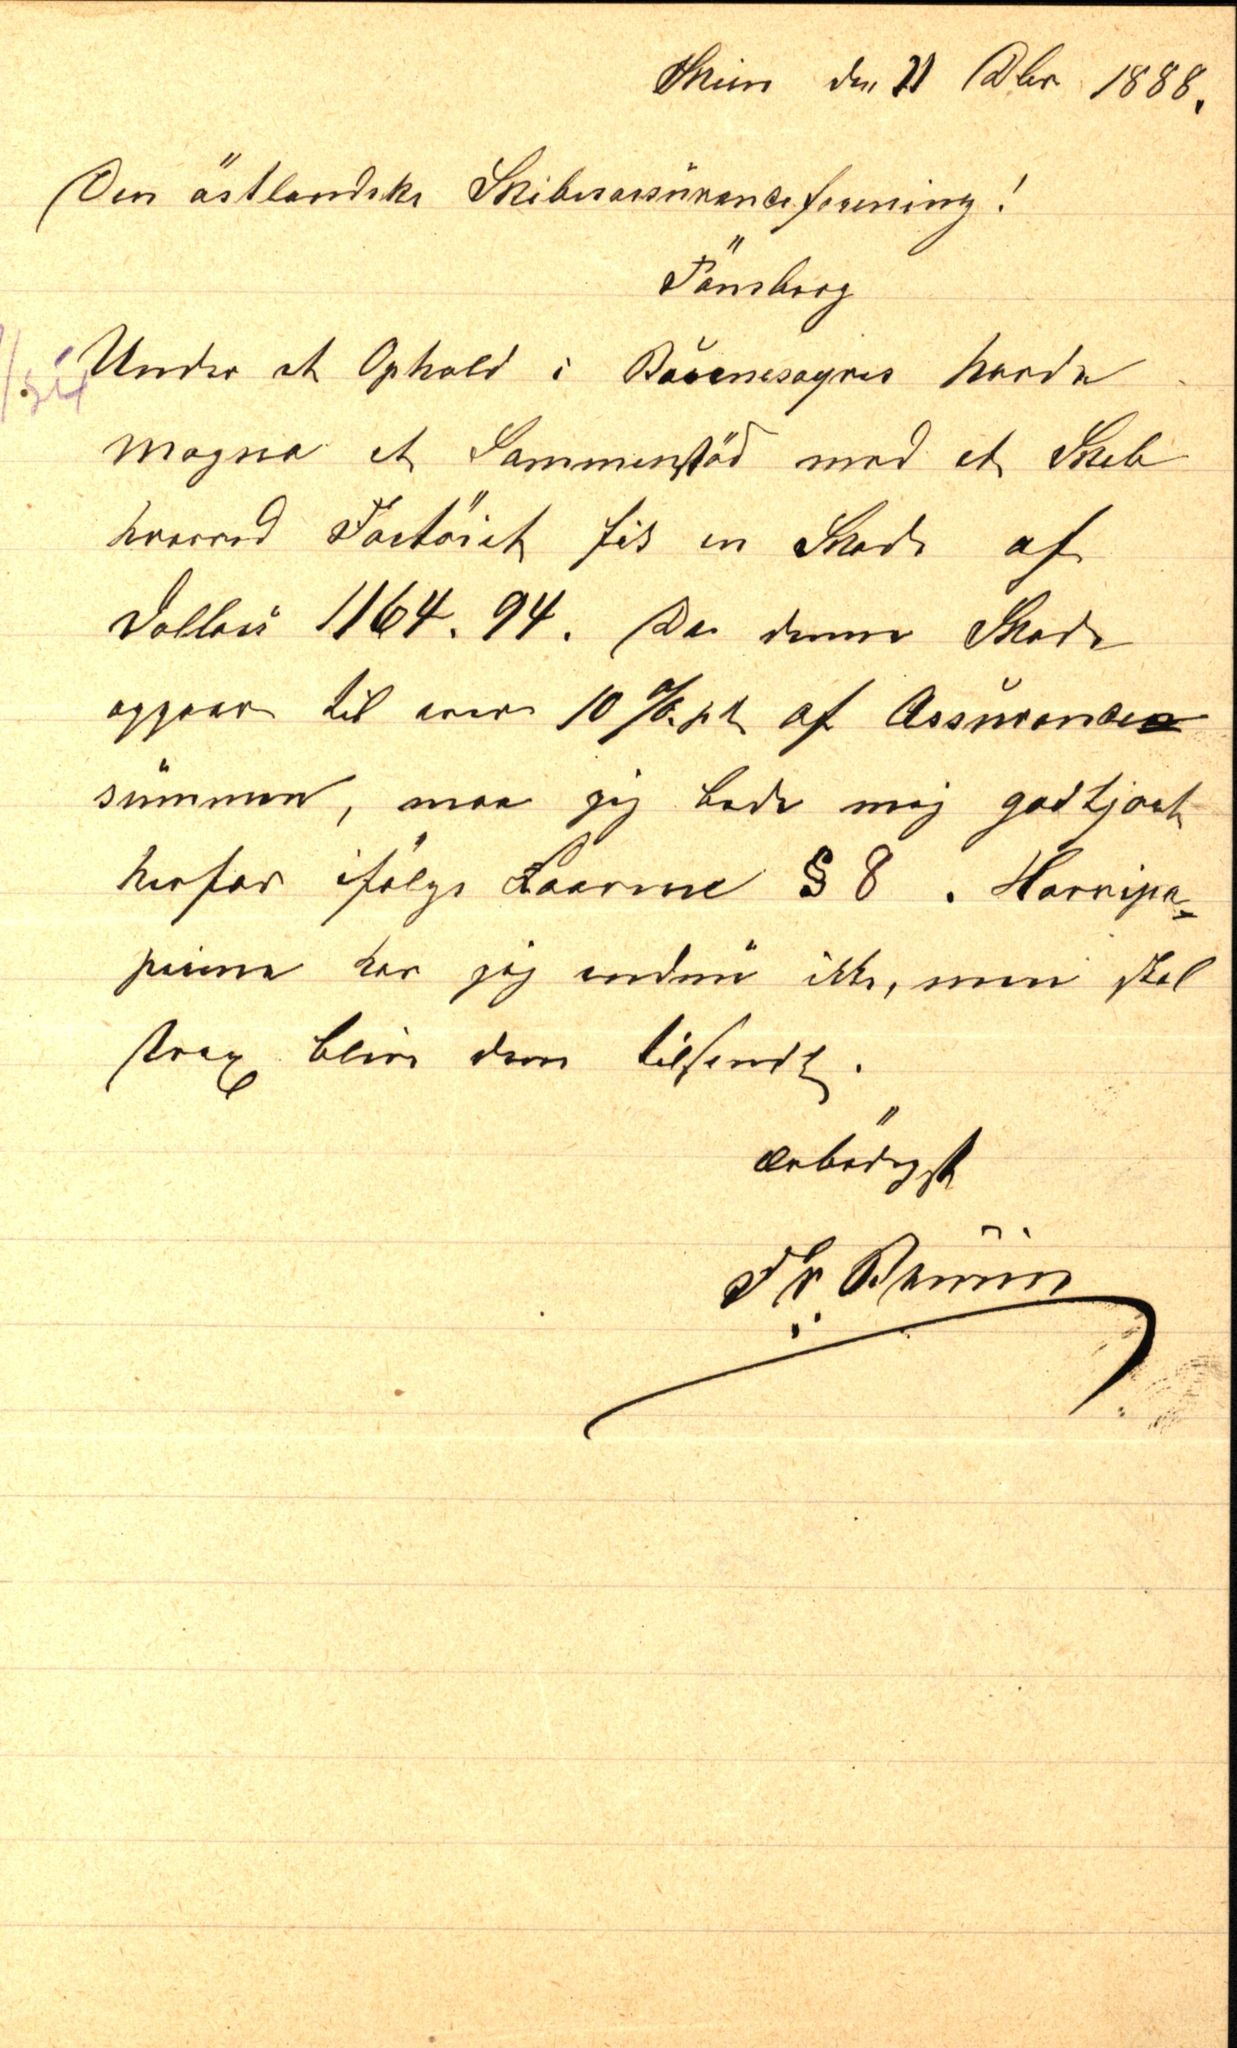 Skien den 21 Dbr 1888.
Den östlandske Skibsassuranceforening!
Tönsberg
Under et Ophold i Buenesayres havde
Magna et Sammenstöd med et Skib
hvorved Fartöiet fik en Skade af
Dollars 1164.94. Da denne Skade
opgaar til over 10 % pt af Assurance
summen, maa jeg bede mig godtjort
herfor ifölge Lovene § 8. Havripa-
pirene har jeg endnu ikke, men skal
strax blive dem tilsendt.
Ærbödigst
Fr. Bruun